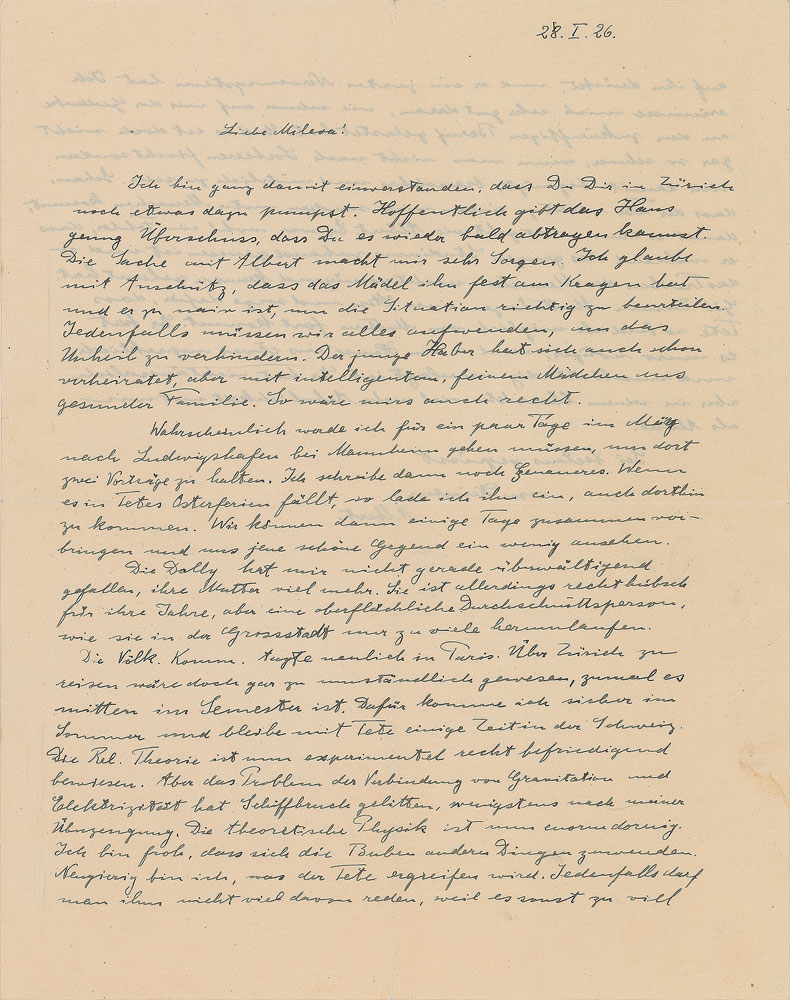 28. I. 26.
Liebe Mileva!
Ich bin ganz damit einverstanden, dass Du Dir in Zürich
noch etwas dazu pumpst. Hoffentlich gibt das Haus
genug Überschuss, dass Du es wieder bald abtragen kannst.
Die Sache mit Albert macht mir sehr Sorgen. Ich glaube
mit Anschütz, dass das Mädel ihn fest am Kragen hat
und er zu naiv ist, um die Situation richtig zu beurteilen.
Jedenfalls müssen wir alles aufwenden, um das
Unheil zu verhindern. Der junge Haber hat sich auch schon
verheiratet, aber mit intelligentem, feinem Mädchen aus
gesunder Familie. So wäre mirs auch recht.
Wahrscheinlich werde ich für ein paar Tage im
nach Ludwigshafen bei Mannheim gehen müssen, um dort
zwei Vorträge zu halten. Ich schreibe dann noch Genaueres. Wenn
es in Tetes Osterferien fällt, so lade ich ihn ein, auch dorthin
zu kommen. Wir können dann einige Tage zusammen ver-
bringen und uns jene schöne Gegend ein wenig ansehen.
Die Dolly hat mir nicht gerade überwältigend
gefallen, ihre Mutter viel mehr. Sie ist allerdings recht hübsch
für ihre Jahre, aber eine oberflächliche Durchschnittsperson,
wie sie in der Grossstadt nur zu viele herumlaufen.
Die Völk. Komm. tagte neulich in Paris. Über Zürich zu
reisen wäre doch gar zu umständlich gewesen, zumal es
mitten im Semester ist. Dafür komme ich sicher im
Sommer und bleibe mit Tete einige Zeit in der Schweiz.
Die Rel. Theorie ist nun experimentel recht befriedigend
bewiesen. Aber das Problem der Verbindung von Gravitation und
Elektrizität hat Schiffbruch gelitten, wenigstens nach meiner
Überzeugung. Die theoretische Physik ist nun enorm dornig.
Ich bin froh, dass sich die Buben andern Dingen zuwenden.
Neugierig bin ich, was der Tete ergreifen wird. Jedenfalls darf
man ihm nicht viel davon reden, weil es sonst zu viel